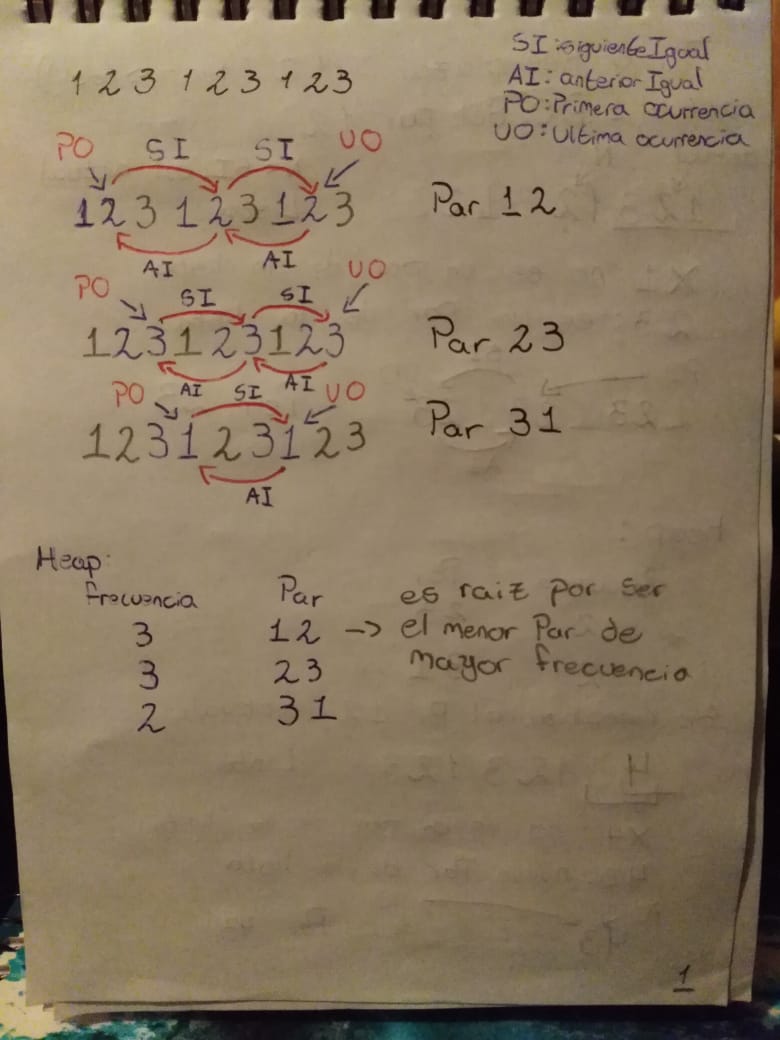 SI:siguienteIgual
AI: anteriorIgual
PO:Primera ocurrencia
UO: Ultima ocurrencia
1 2 3 1 2 3 1 2 3
PO SI SI UO
1 2 3 1 2 3 1 2 3 Par 1 2
AI AI
PO SI SI UO
1 2 3 1 2 3 1 2 3 Par 2 3
AI AI
PO SI UO
1 2 3 1 2 3 1 2 3 Par 3 1
AI
Heap:
frecuencia Par
3 1 2 -> es raiz por ser
3 2 3 el menor Par de
2 3 1 mayor frecuencia
1